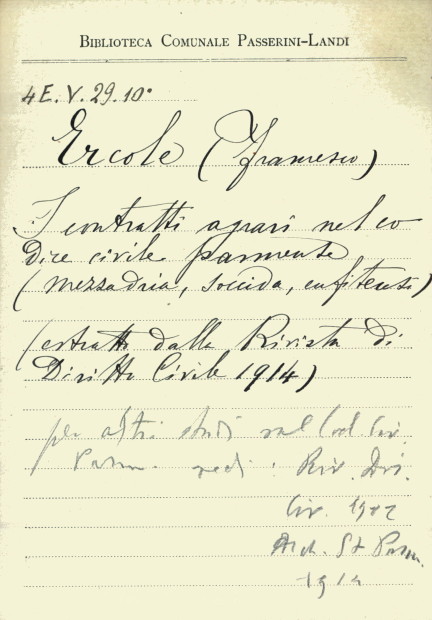 BIBLIOTECA COMUNALE PASSERINI-LANDI
4E.V.29.10°
Ercole (Francesco)
I contratti agrari nel co
dice civile parmense
(mezzadria, soccida, enfiteusi)
(estratto dalla Rivista di
Diritto Civile 1914)
per altri studi sul Cod. Civ.
Parm. vedi: Riv. Dir.
Civ. 1912
Arch. St Parm.
1914